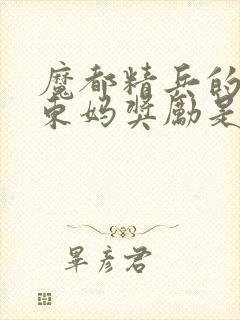 魔都精兵的
东妈奖励是
畢彦君